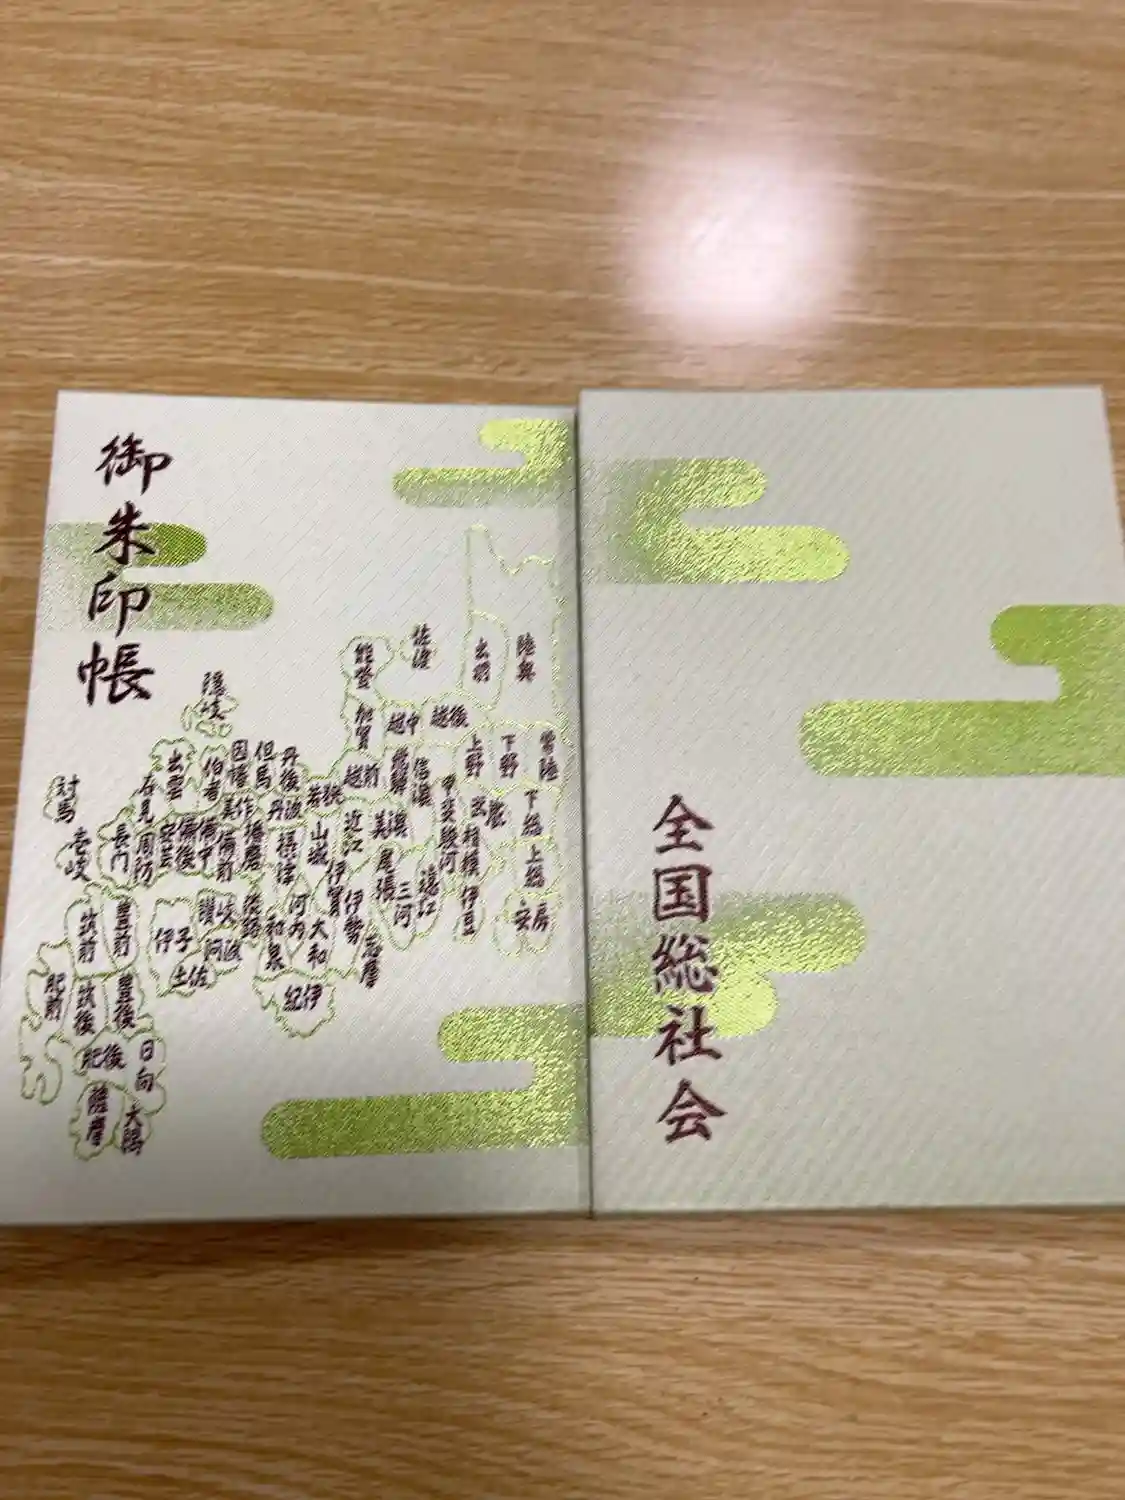 御朱印帳
隠岐
能登
佐渡
出羽
陸奥
加賀
越中
越後
上野
下野
常陸
対馬
壱岐
石見
出雲
伯耆
因幡
但馬
丹後
丹波
若狭
越前
飛騨
信濃
甲斐
武蔵
下総
長門
周防
安芸
備後
備中
美作
備前
播磨
摂津
山城
近江
美濃
尾張
駿河
相模
上総
伊賀
伊勢
三河
遠江
伊豆
安房
筑前
豊前
伊予
讃岐
阿波
淡路
土佐
和泉
河内
大和
志摩
紀伊
肥前
筑後
豊後
肥後
日向
薩摩
大隅
全国総社会